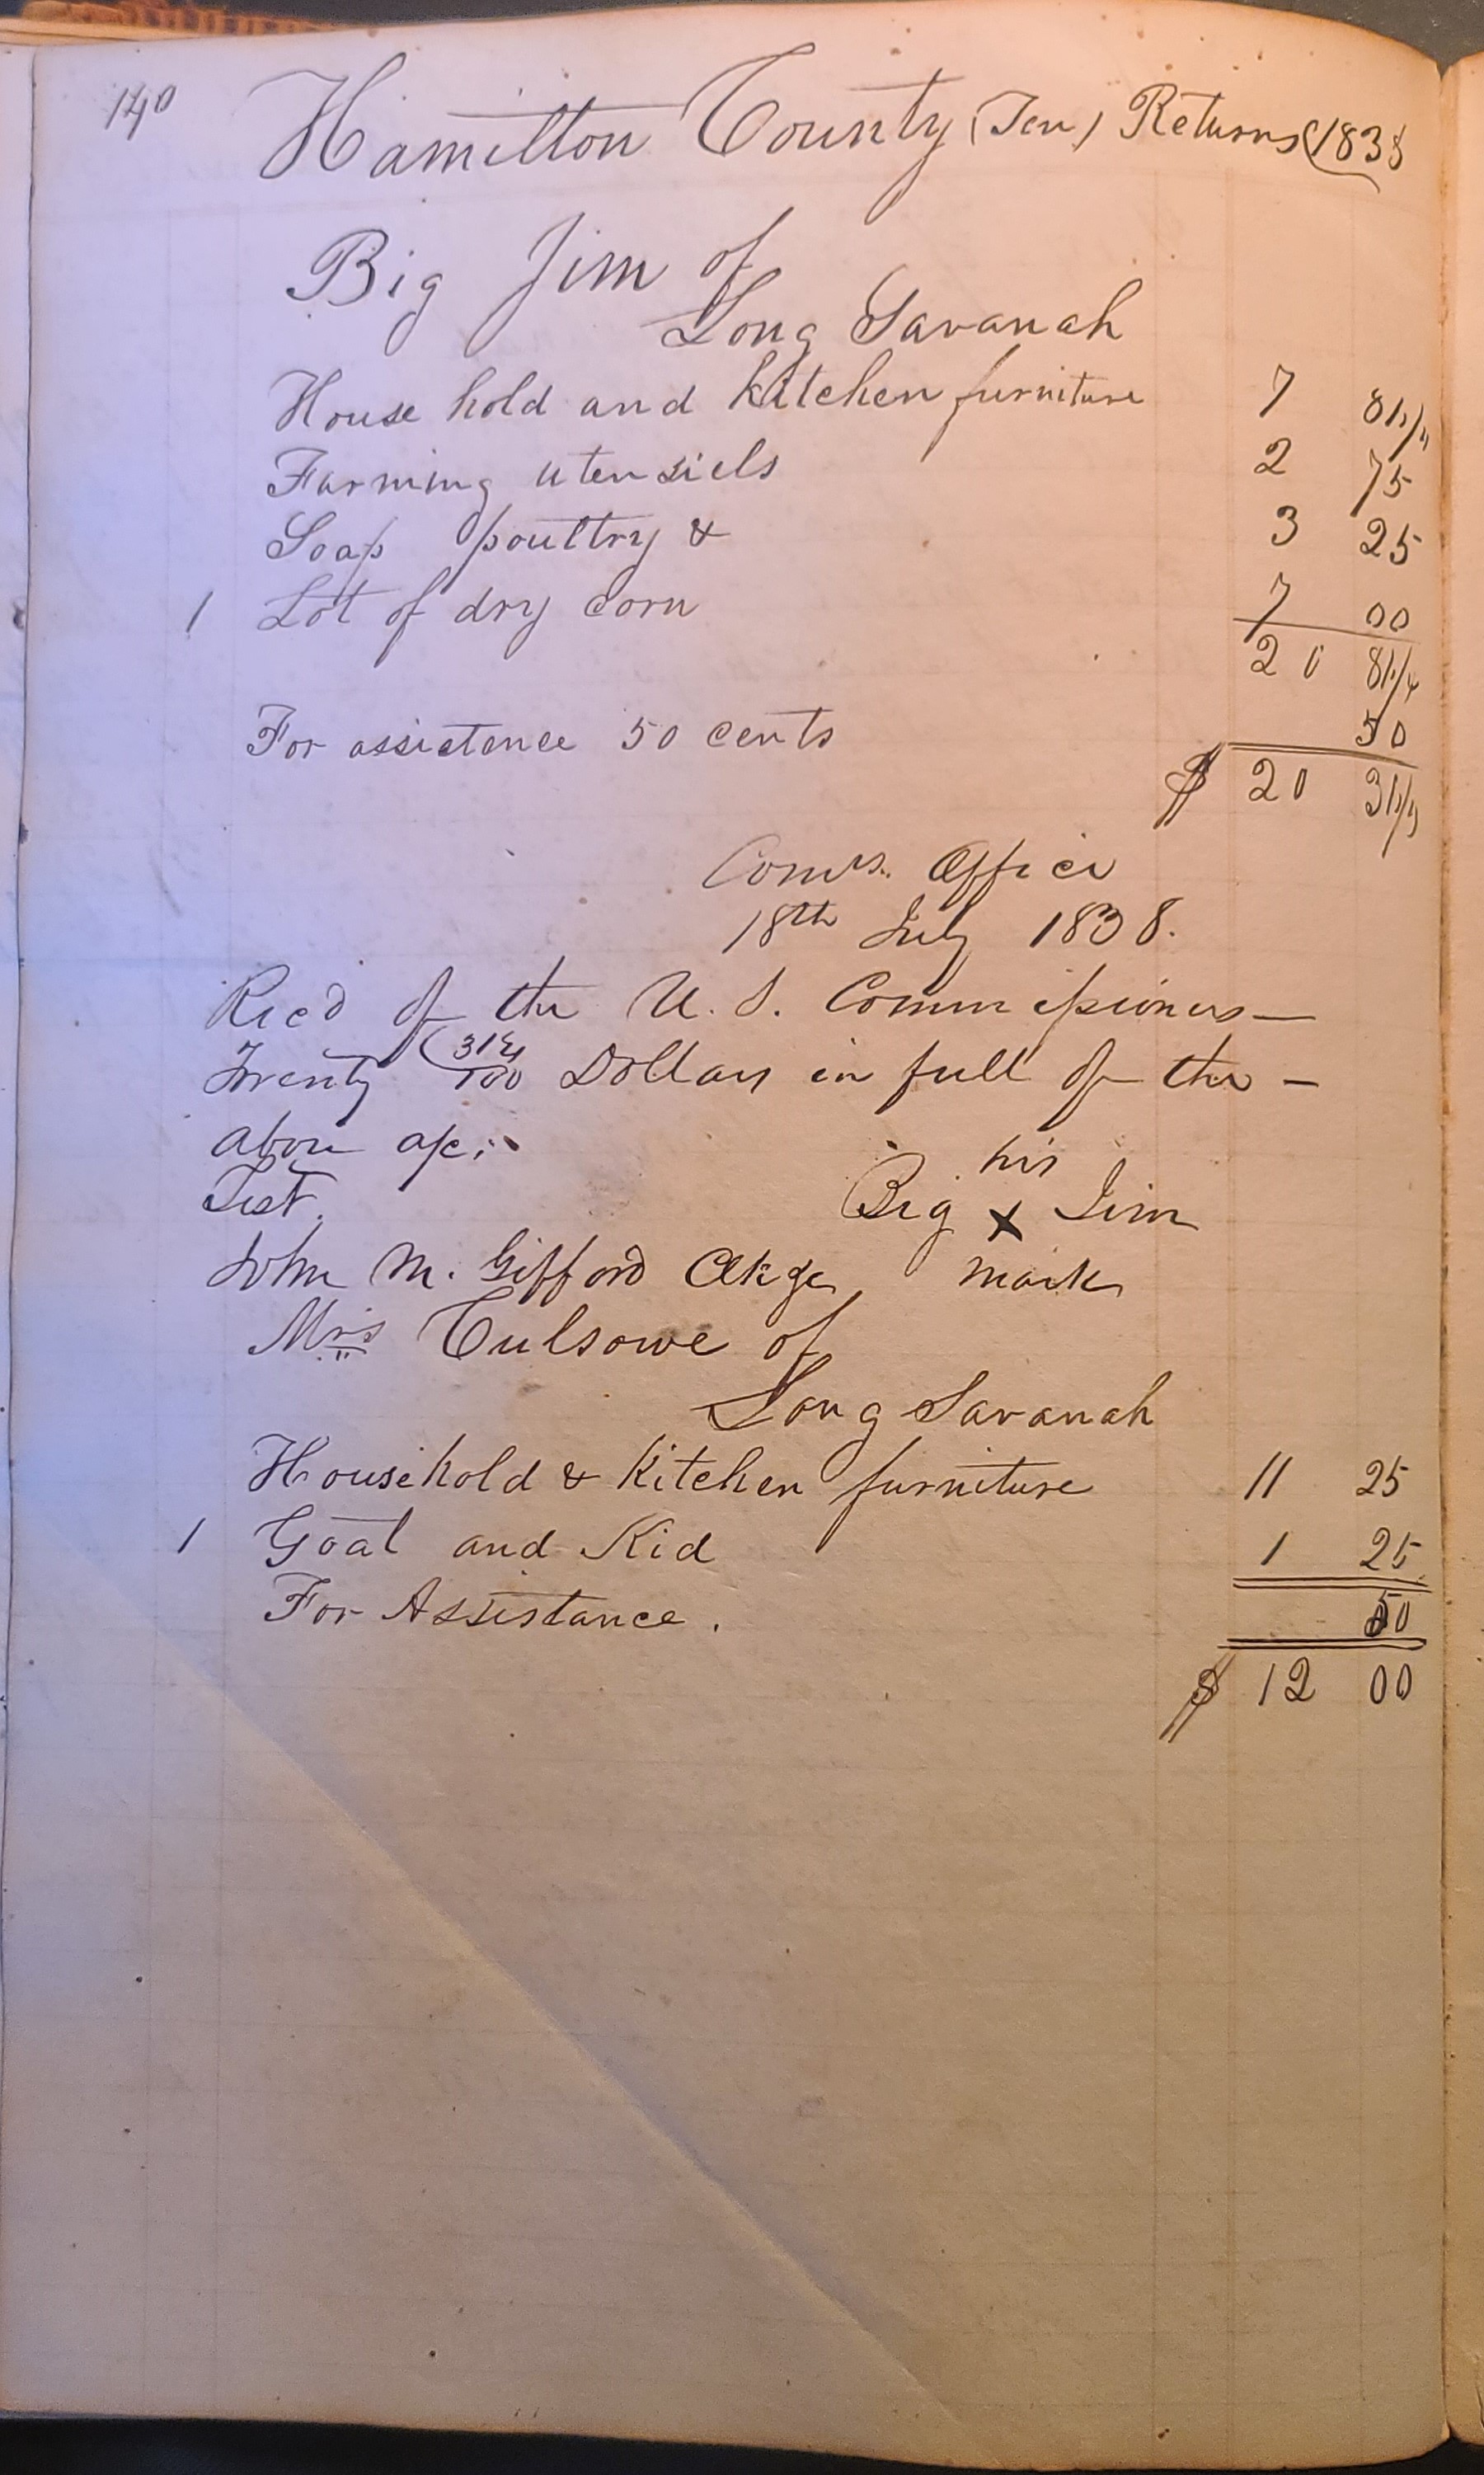 140 Hamilton County (Ten) Returns (1838
Big Jim of
Long Savanah
House hold and kitchen furniture 7 81 1/4
Farming utensiels 2 75
Soap poultry & 3 25
1 Lot of dry corn 7 00
20 81 1/4
For assistence 50 cents 50
$ 20 31 1/4
Comrs. Office
18th July 1838.
Recd of the U. S. Commissioners —
Twenty (31 1/4/100 Dollars in full of the —
above a/c.
his
Test. Big X Jim
John M. Gifford mark
Mrs Culsowe of
Long Savanah
Household & Kitchen furniture 11 25
1 Goat and Kid 1 25
For Assistance. 50
$ 12 00